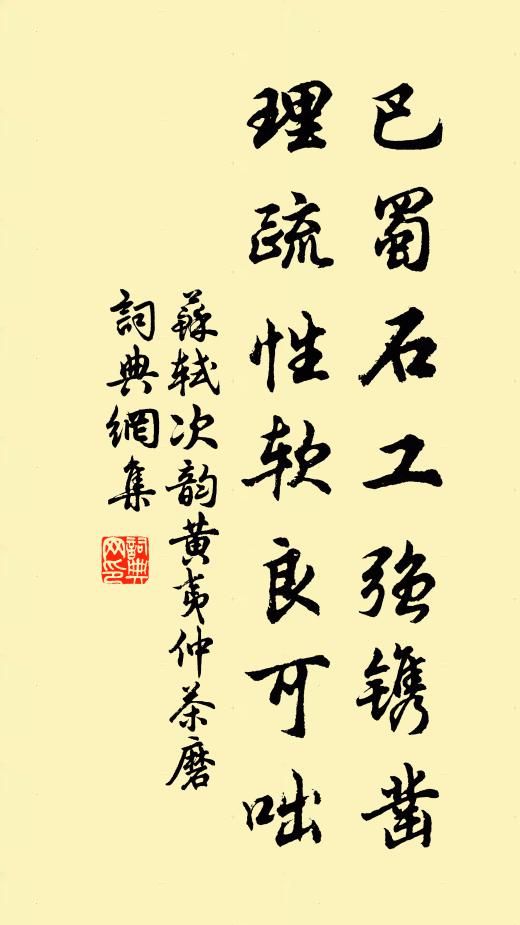 巴蜀石工强镌凿
理疏性软良可咄
蘇軾次韵黄夷仲茶磨
詞典網集
詞典網印